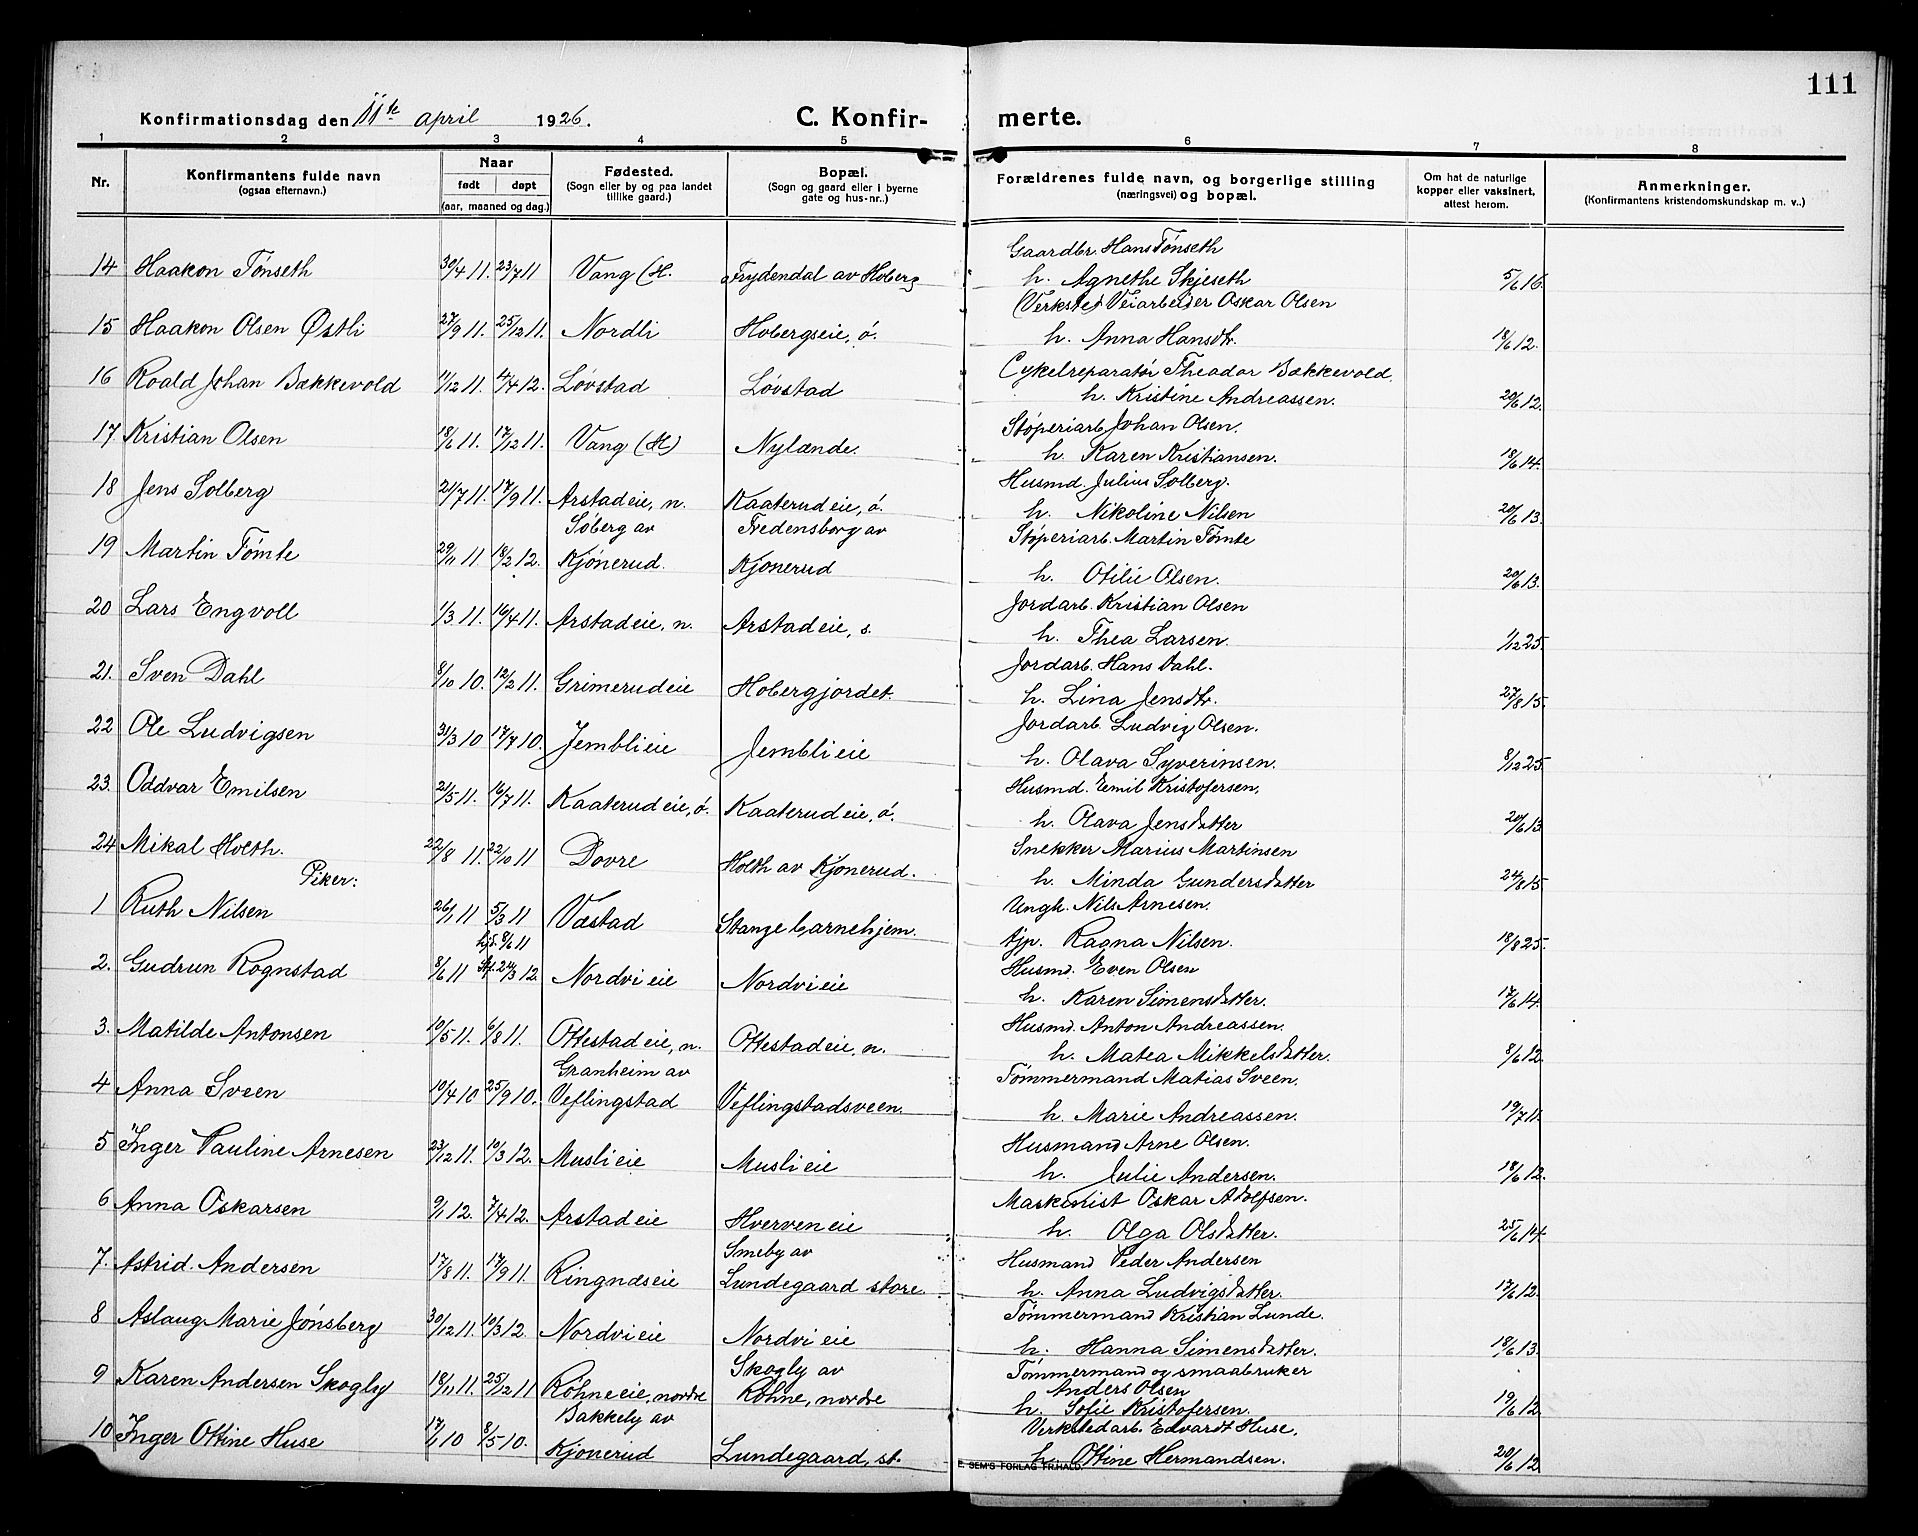 111
Konfirmationsdag den 11te april 1926.
C. Konfir- merte.
1 2 3 4 5 6 7 8
Nr.
Konfirmantens fulde navn
(ogsaa efternavn.)
Naar
født døpt
(aar, maaned og dag.)
Fødested.
(Sogn eller by og paa landet
tillike gaard.)
Bopæl.
(Sogn og gaard eller i byerne
gate og hus-nr..)
Forældrenes fulde navn, og borgerlige stilling
(næringsvei) og bopæl.
Om hat de naturlige
kopper eller vaksinert,
attest herom.
Anmerkninger.
(Konfirmantens kristendomskundskap m. v..)
Gaardbr. Hans Tønseth
14 Haakon Tønseth 30/4 11. 23/7 11 Vang (H. Frydendal av Hoberg h. Agnethe Skjeseth 5/6 16.
(Verksted) Veiarbeider Oskar Olsen
15 Haakon Olsen Østli 27/9 11. 25/12 11. Nordli Hobergseie, ø. h. Anna Hansdtr. 18/6 12.
16 Roald Johan Bækkevold 11/12 11. 4/4 12. Løvstad Løvstad Cykelreparatør Theodor Bækkevold.
h. Kristine Andreassen. 20/6 12.
17 Kristian Olsen 18/6 11. 17/12 11. Vang (H) Nylænde. Støperiarb. Johan Olsen.
h. Karen Kristiansen. 18/6 14.
18 Jens Solberg 21/7 11. 17/9 11. Arstadeie, n. Kaaterudeie, ø. Husmd. Julius Solberg.
h. Nikoline Nilsen 20/6 13.
Søberg av Fredensborg av
19 Martin Tømte 29/11 11. 18/2 12. Kjønerud. Kjønerud Støperiarb. Martin Tømte
h. Otilie Olsen. 20/6 13.
20 Lars Engvoll 1/3 11. 16/4 11. Arstadeie, n. Arstadeie, s. Jordarb. Kristian Olsen
h. Thea Larsen. 1/12 25.
21. Sven Dahl 8/10 10. 12/2 11. Grimerudeie Hobergjordet. Jordarb. Hans Dahl.
h. Lina Jensdtr. 27/8 15.
22 Ole Ludvigsen 31/3 10 17/7 10. Jemblieie Jemblieie Jordarb. Ludvig Olsen.
h. Olava Syverinsen. 8/12 25.
23. Oddvar Emilsen 21/5 11. 16/7 11. Kaaterudeie, ø. Kaaterudeie, ø. Husmd. Emil Kristofersen,
h. Olava Jensdatter 20/6 13
24 Mikal Holth. 22/8 11. 22/10 11 Dovre Holth av Kjønerud. Snekker Marius Martinsen
h. Minda Gundersdatter 24/8 15.
Piker:
1 Ruth Nilsen 26/1 11 5/3 11 Vestad Stange barnehjem. Ungk. Nils Arnesen.
tjp. Ragna Nilsen. 18/8 25.
hjd. 8/6 11
2. Gudrun Rognstad 8/6 11 Stf. 24/3 12. Nordvi eie Nordvi eie Husmd. Even Olsen
h. Karen Simensdatter. 17/6 14.
3. Matilde Antonsen 10/5 11. 6/8 11. Ottestad eie, n. Ottestad eie, n. Husmd. Anton Andreassen.
h. Matea Mikkelsdatter. 8/6 12.
Granheim av
4 Anna Sveen 10/4 10 25/9 10. Veflingstad Veflingstadsveen. Tømmermand Matias Sveen.
h. Marie Andreassen. 19/7 11.
5 Inger Pauline Arnesen 23/12 11. 10/3 12. Musli eie Musli eie Husmand Arne Olsen.
h. Julie Andersen. 18/6 12.
6 Anna Oskarsen 9/1 12. 7/4 12. Arstad eie Hverven eie Maskinist Oskar Adolfsen.
h. Olga Olsdatter. 25/6 14.
Smeby av
7. Astrid Andersen 17/8 11. 17/9 11. Ringnæseie Lundegaard store. Husmand Peder Andersen
h. Anna Ludvigsdatter. 17/6 12.
8 Aslaug Marie Jønsberg 30/12 11. 10/3 12 Nordvi eie Nordvi eie Tømmermand Kristian Lunde.
h. Hanna Simensdatter. 18/6 13.
Skogly av
9 Karen Andersen Skogly 18/11 11. 25/12 11 Røhneeie, nordre Røhne, nordre Tømmermand og smaabruker
Anders Olsen
h. Sofie Kristofersen. 19/6 12.
Bakkely av
10 Inger Ottine Huse 17/1 10 8/5 10. Kjønerud Lundegaard, st. Verkstedarb. Edvardt Huse,
h. Ottine Hermandsen. 20/6 12
E. SEM'S FORLAG FR.HALD.